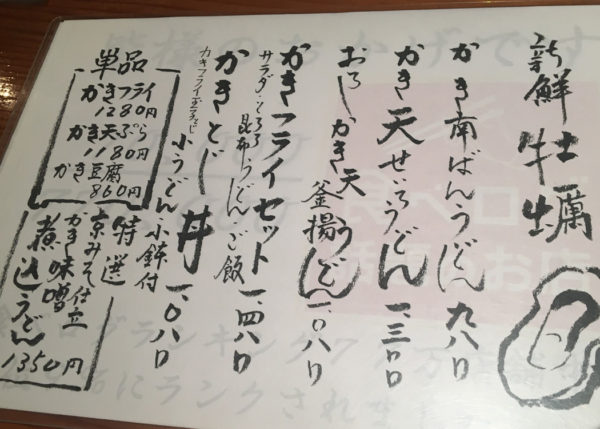 新鮮牡蠣
かき南ばんうどん 九八〇
かき天せいろうどん 一、三〇〇
おろしかき天うどん 一、〇八〇
釜揚
かきフライセット 一、四八〇
サラダ・とろろ昆布うどん・ご飯
かきとじ丼 一、〇八〇
小うどん・小鉢付
単品
かきフライ
1280円
かき天ぷら
1180円
かき豆腐
860円
特選
京みそ仕立
かき味噌
煮込うどん
1350円